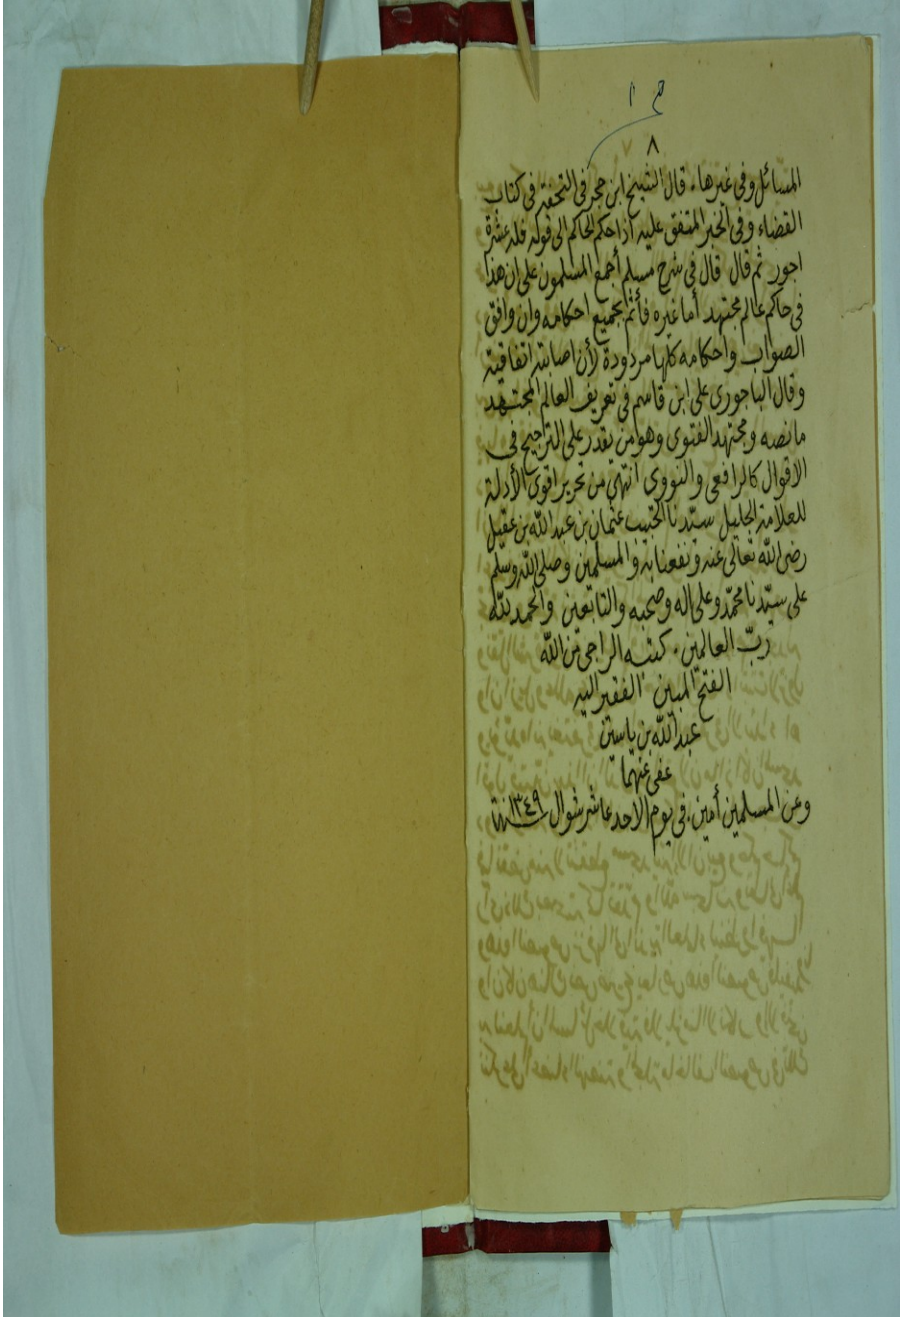 ٨
المسائل وفى غيرها، قال الشيخ ابن حجر فى التحفة فى كتاب
القضاء وفى الخبر المتفق عليه اذا حكم الحاكم الى قوله فله عشرة
اجور ثم قال قال فى شرح مسلم أجمع المسلمون على ان هذا
فى حاكم عالم مجتهد أما غيره فأثم بجميع احكامه وان وافق
الصواب واحكامه كلها مردودة لأن اصابته اتفاقية
وقال الباجورى على ابن قاسم فى تعريف العالم المجتهد
مانصه ومجتهد الفتوى وهو من يقدر على التراجيح فى
الاقوال كالرافعى والنووى انتهى من تحرير اقوى الأدلة
للعلامة الجليل سيّدنا الحبيب عثمان بن عبد الله بن عقيل
رضى الله تعالى عنه ونفعنا به والمسلمين وصلى الله وسلم
على سيّدنا محمّد وعلى اله وصحبه والتابعين والحمد لله
ربّ العالمين، كتبه الراجى من الله
الفتح المبين الفقير اليه
عبد الله بن ياسين
عفى عنهما
وعن المسلمين أمين، فى يوم الاحد عاشر شوال ١٣٤٩